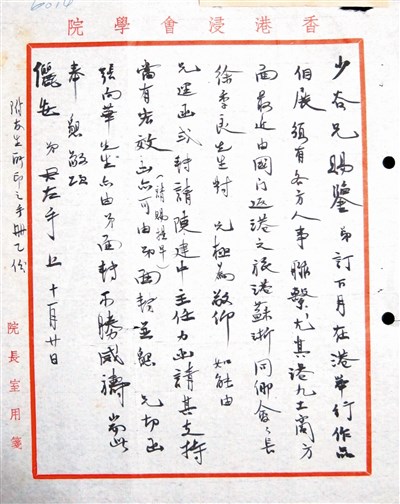 香港浸會學院
少杏兄賜鑒弟訂下月在港舉行作品
伯展須有各方人事聯繫尤其港九工商方
面最近由國门返港之旅港蘇浙同鄉會会長
徐季良先生對 兄極為敬仰 如能由
兄逕函或轉請陳建中主任力函請其支持
當有宏效函亦可由弟面
張向華先生亦由弟面轉不勝感禱耑此
奉懇敬頌
儷安 弟 君左手上 十一月廿日
附友生所印之手冊乙份
院長室用箋